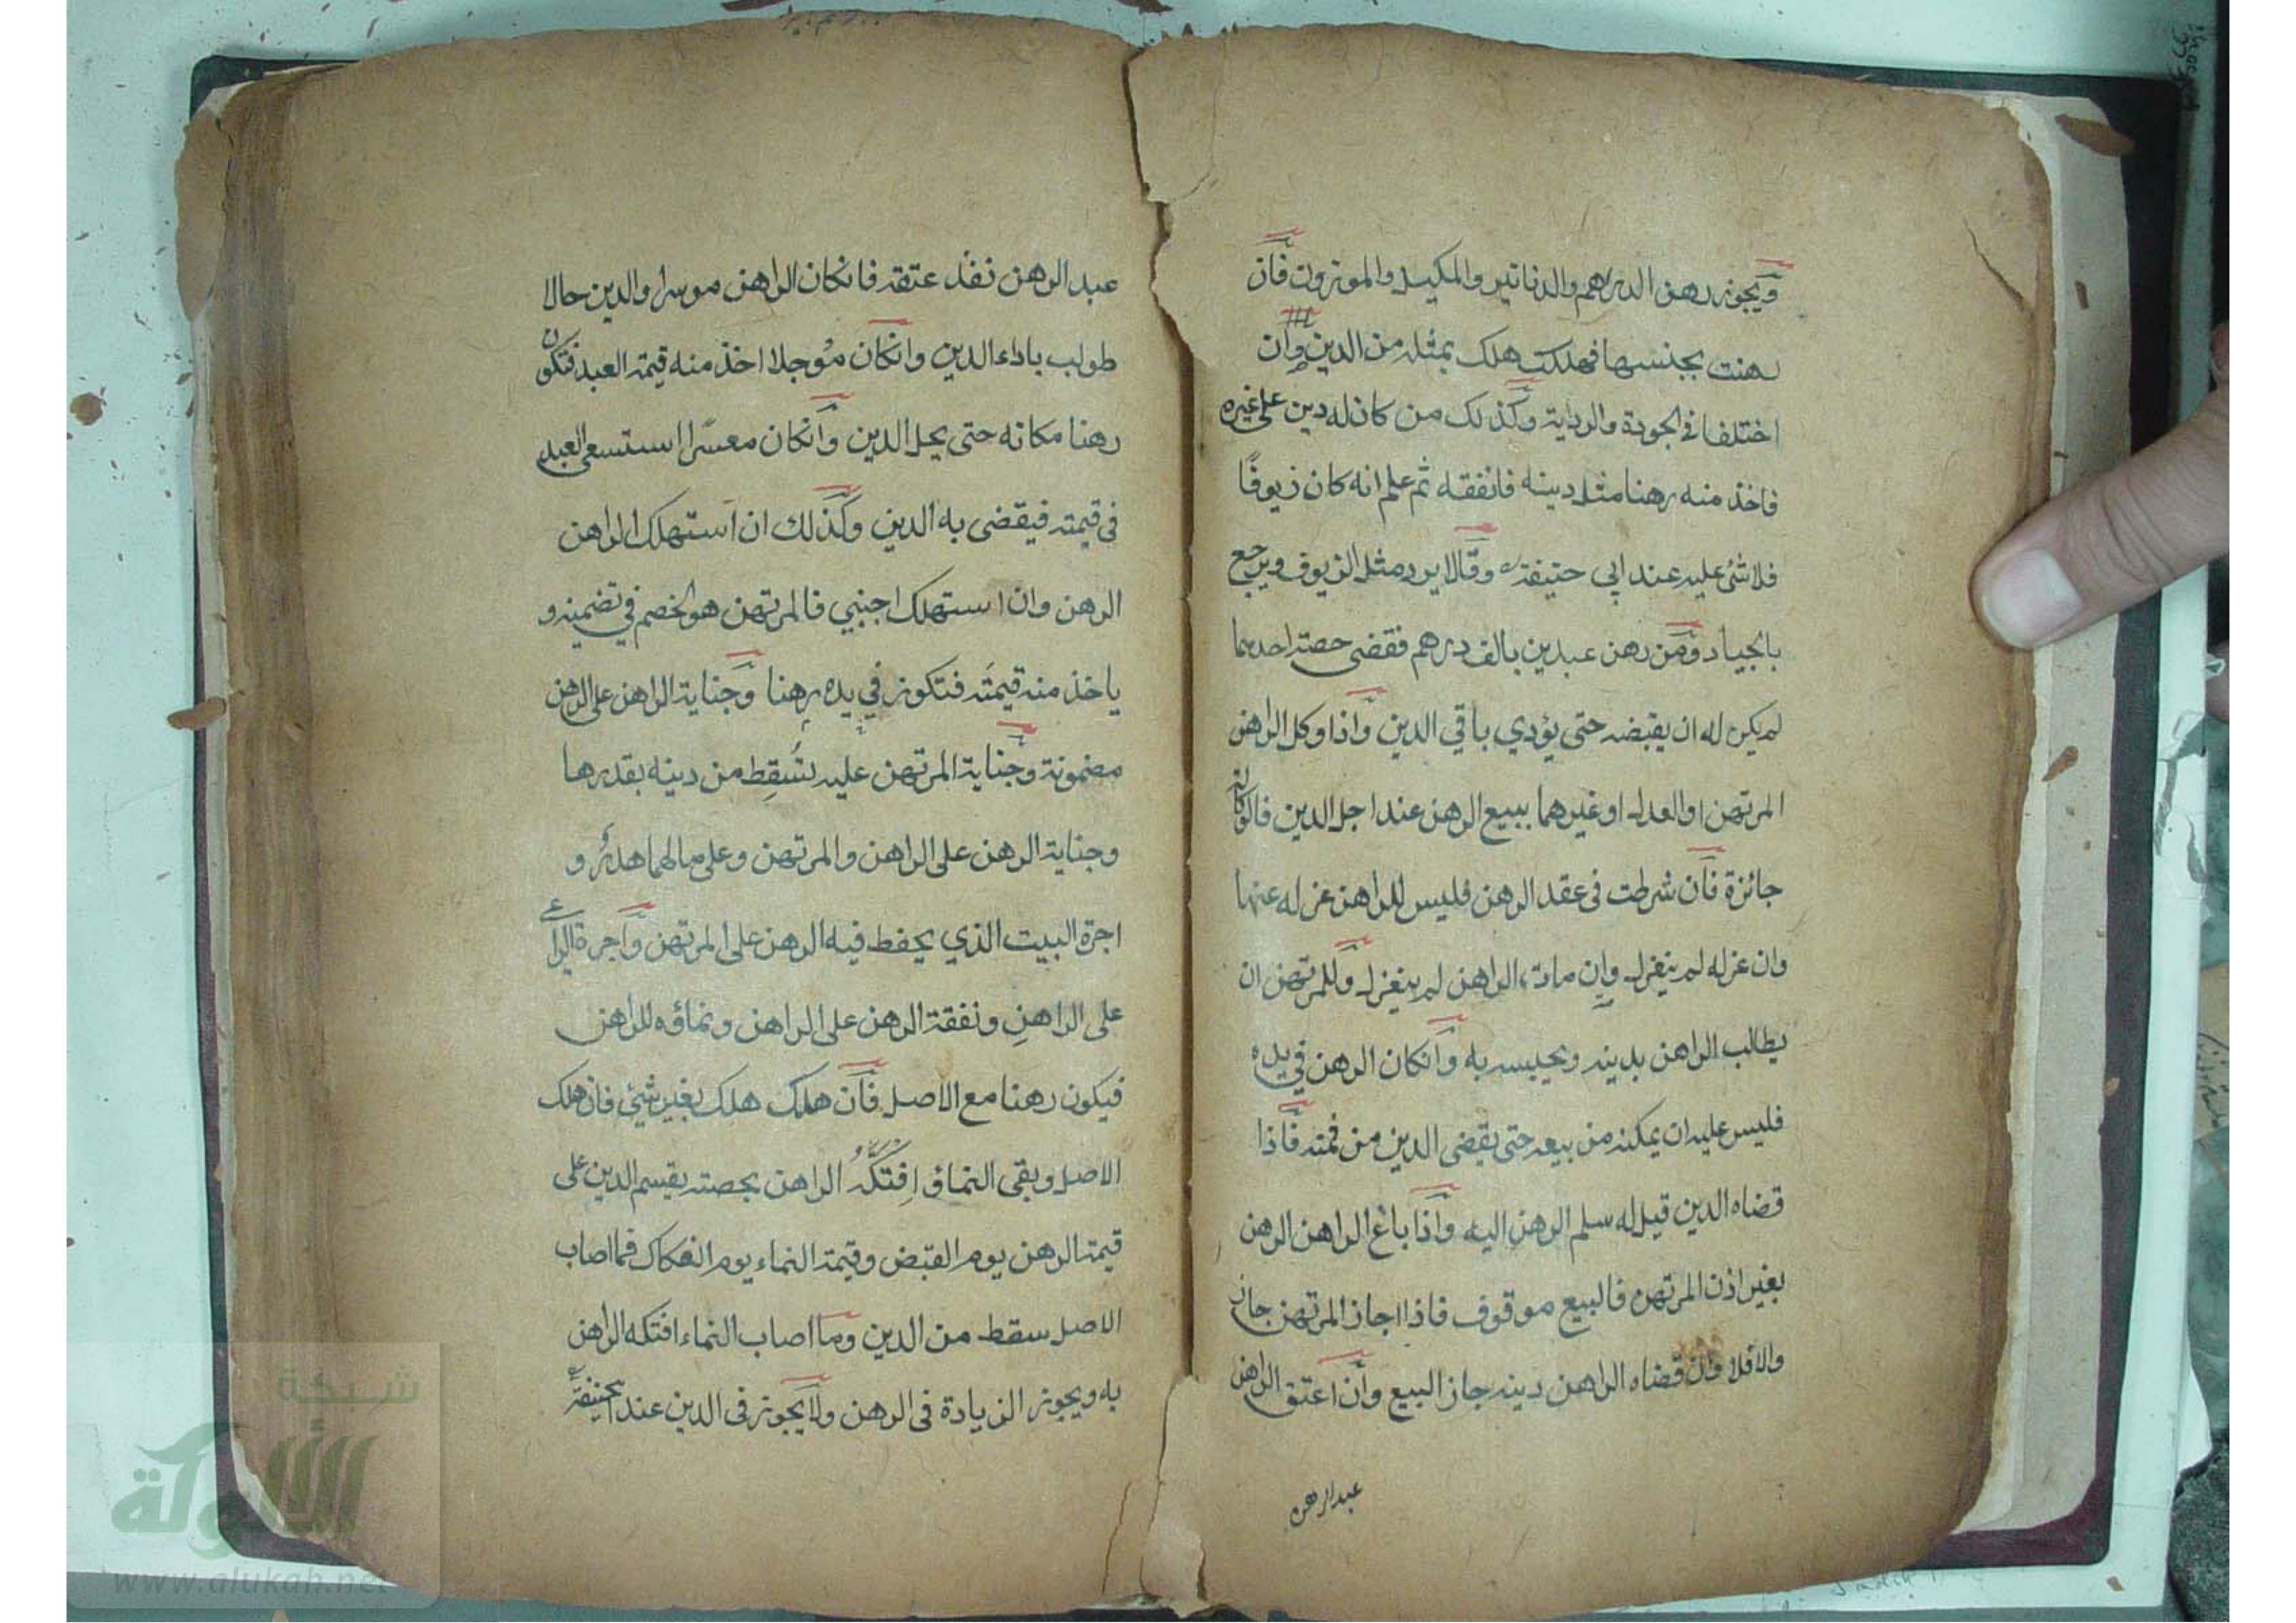 ويجوز رهن الدراهم والدنانير والمكيل والموزون فان
رهنت بجنسها فهلكت هلك بمثله من الدين وان
اختلفا في الجودة والرداية وكذلك من كان له دين على غيره
فاخذ منه رهنا مثل دينه فانفقه ثم علم انه كان زيوفًا
فلا شئ عليه عند ابي حنيفة وقالا يرد مثل الزيوف ويرجع
بالجياد ومن رهن عبدين بالف درهم فقضى حصة احدهما
لم يكن له ان يقبضه حتى يؤدي باقي الدين واذا وكل الراهن
المرتهن او العدل او غيرهما ببيع الرهن عند اجل الدين فالوكالة
جائزة فان شرطت في عقد الرهن فليس للراهن عزله عنها
وان عزله لم ينعزل وان مات الراهن لم ينعزل وللمرتهن ان
يطالب الراهن بدينه ويحبسه به وانكان الرهن في يده
فليس عليه ان يمكنه من بيعه حتى يقضى الدين من ثمنه فاذا
قضاه الدين قيل له سلم الرهن اليه واذا باع الراهن الرهن
بغير اذن المرتهن فالبيع موقوف فاذا اجاز المرتهن جاز
والا فلا وان قضاه الراهن دينه جاز البيع وان اعتق الراهن
عبد الرهن
عبد الرهن نفذ عتقه فانكان الراهن موسرا والدين حالا
طولب باداء الدين وانكان مؤجلا اخذ منه قيمة العبد فتكون
رهنا مكانه حتى يحل الدين وانكان معسرًا استسعى العبد
في قيمته فيقضى به الدين وكذلك ان استهلك الراهن
الرهن وان استهلك اجنبي فالمرتهن هو الخصم في تضمينه و
ياخذ منه قيمته فتكون في يده رهنا وجناية الراهن على الرهن
مضمونة وجناية المرتهن عليه تسقط من دينه بقدرها
وجناية الرهن على الراهن والمرتهن وعلى مالهما هدر و
اجرة البيت الذي يحفط فيه الرهن على المرتهن واجرة الراعي
على الراهنِ ونفقة الرهن على الراهن ونماؤه للراهن
فيكون رهنا مع الاصل فان هلك هلك بغير شئ فان هلك
الاصل وبقى النماؤ اِفتكّهُ الراهن بحصته يقسم الدين على
قيمة الرهن يوم القبض وقيمة النماء يوم الفكاك فما اصاب
الاصل سقط من الدين وما اصاب النماء افتكه الراهن
به ويجوز الزيادة في الرهن ولا يجوز في الدين عند ابيحنيفة
شبكة
الألوكة
www.alukah.net